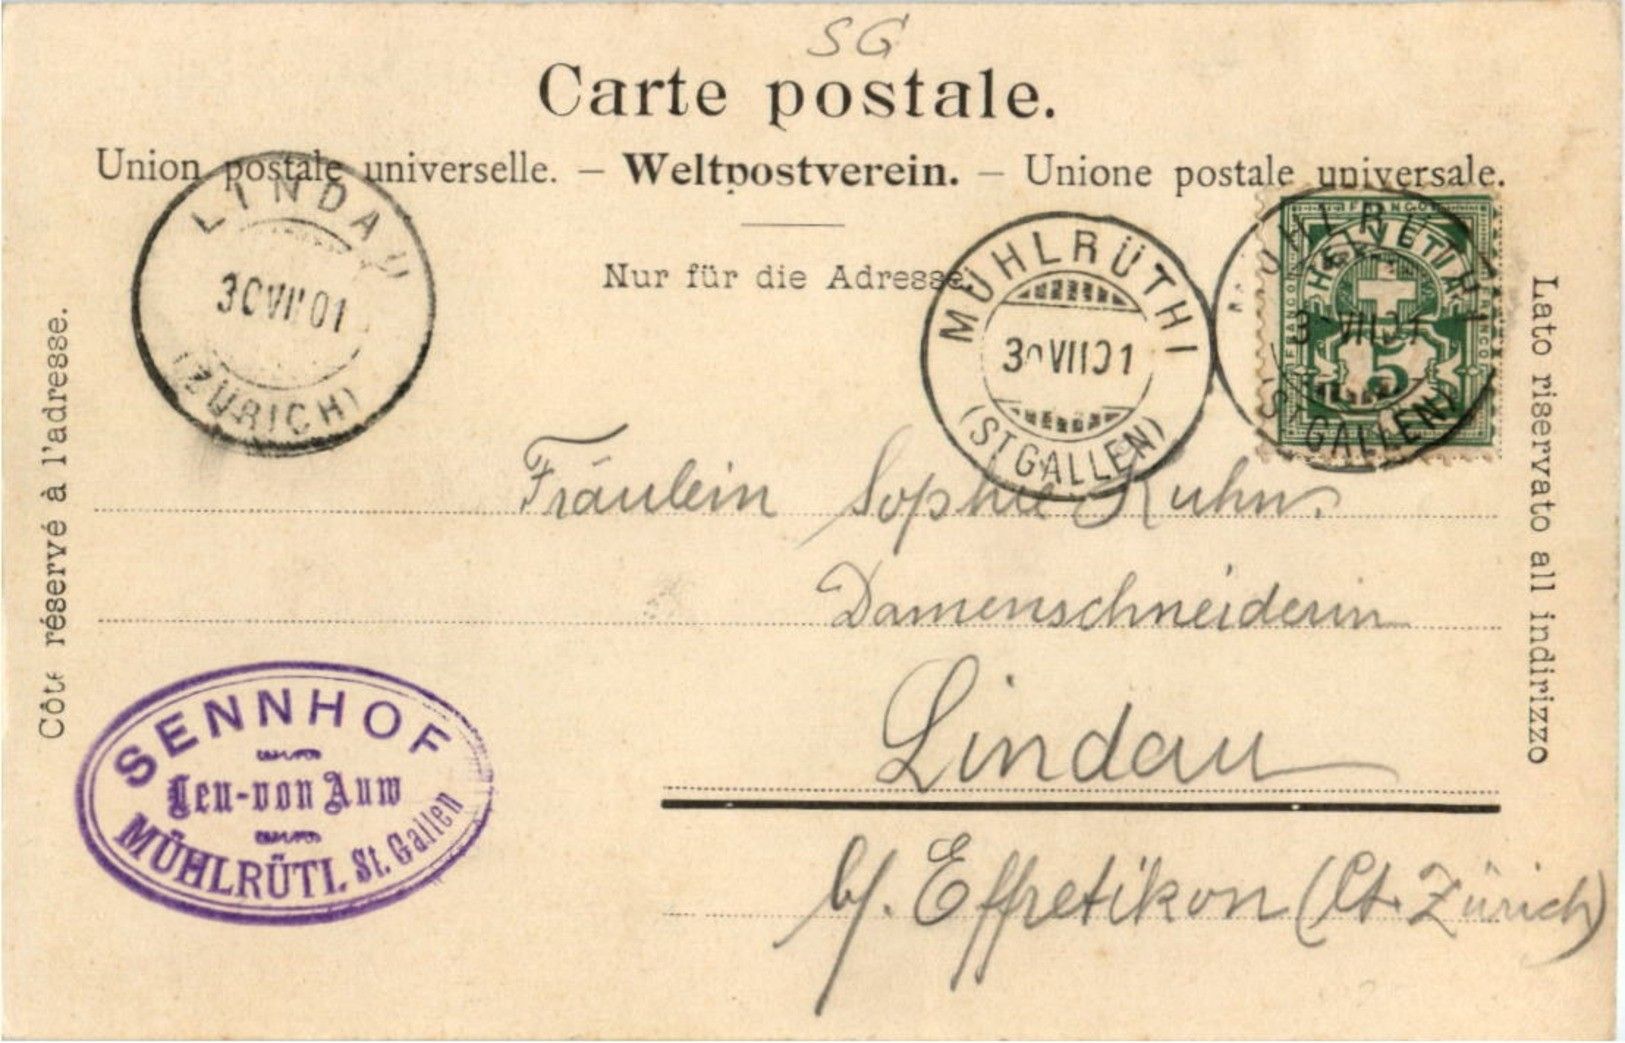 SG
Carte postale.
Union postale universelle. — Weltpostverein. — Unione postale universale.
Nur für die Adresse.
LINDAU
30 VII 01
(ZÜRICH)
MÜHLRÜTHI
30 VII 01
(ST GALLEN)
MÜHLRÜTHI
VII 01
(ST GALLEN)
FRANCO
HELVETIA
FRANCO
FRANCO
5
Côté réservé à l'adresse.
Lato riservato all indirizzo
Fräulein Sophie Kuhn.
Damenschneiderin
Lindau
b/. Effretikon (Ct. Zürich)
SENNHOF
Leu-von Auw
MÜHLRÜTI, St. Gallen